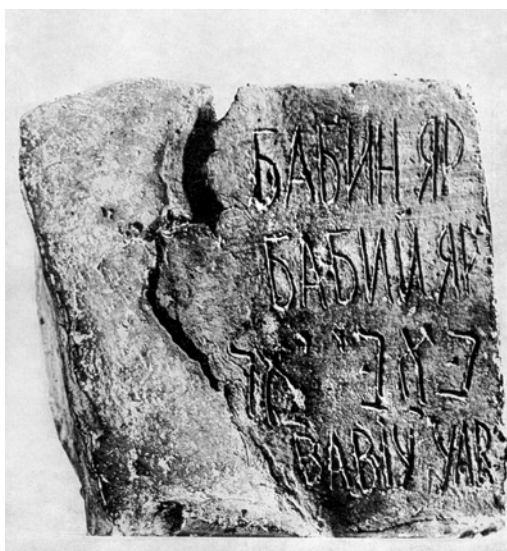 БАБИН ЯР
БАБИЙ ЯР
באבי יאר
BABIY YAR